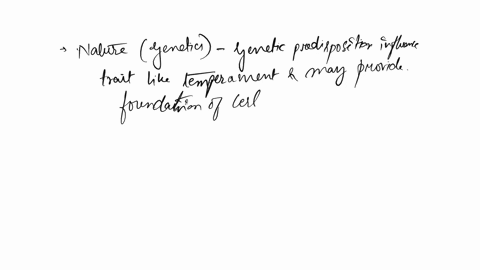 → Nature (Genetics) - Genetic predisposition influence
trait like temperament & may provide.
foundation of cer